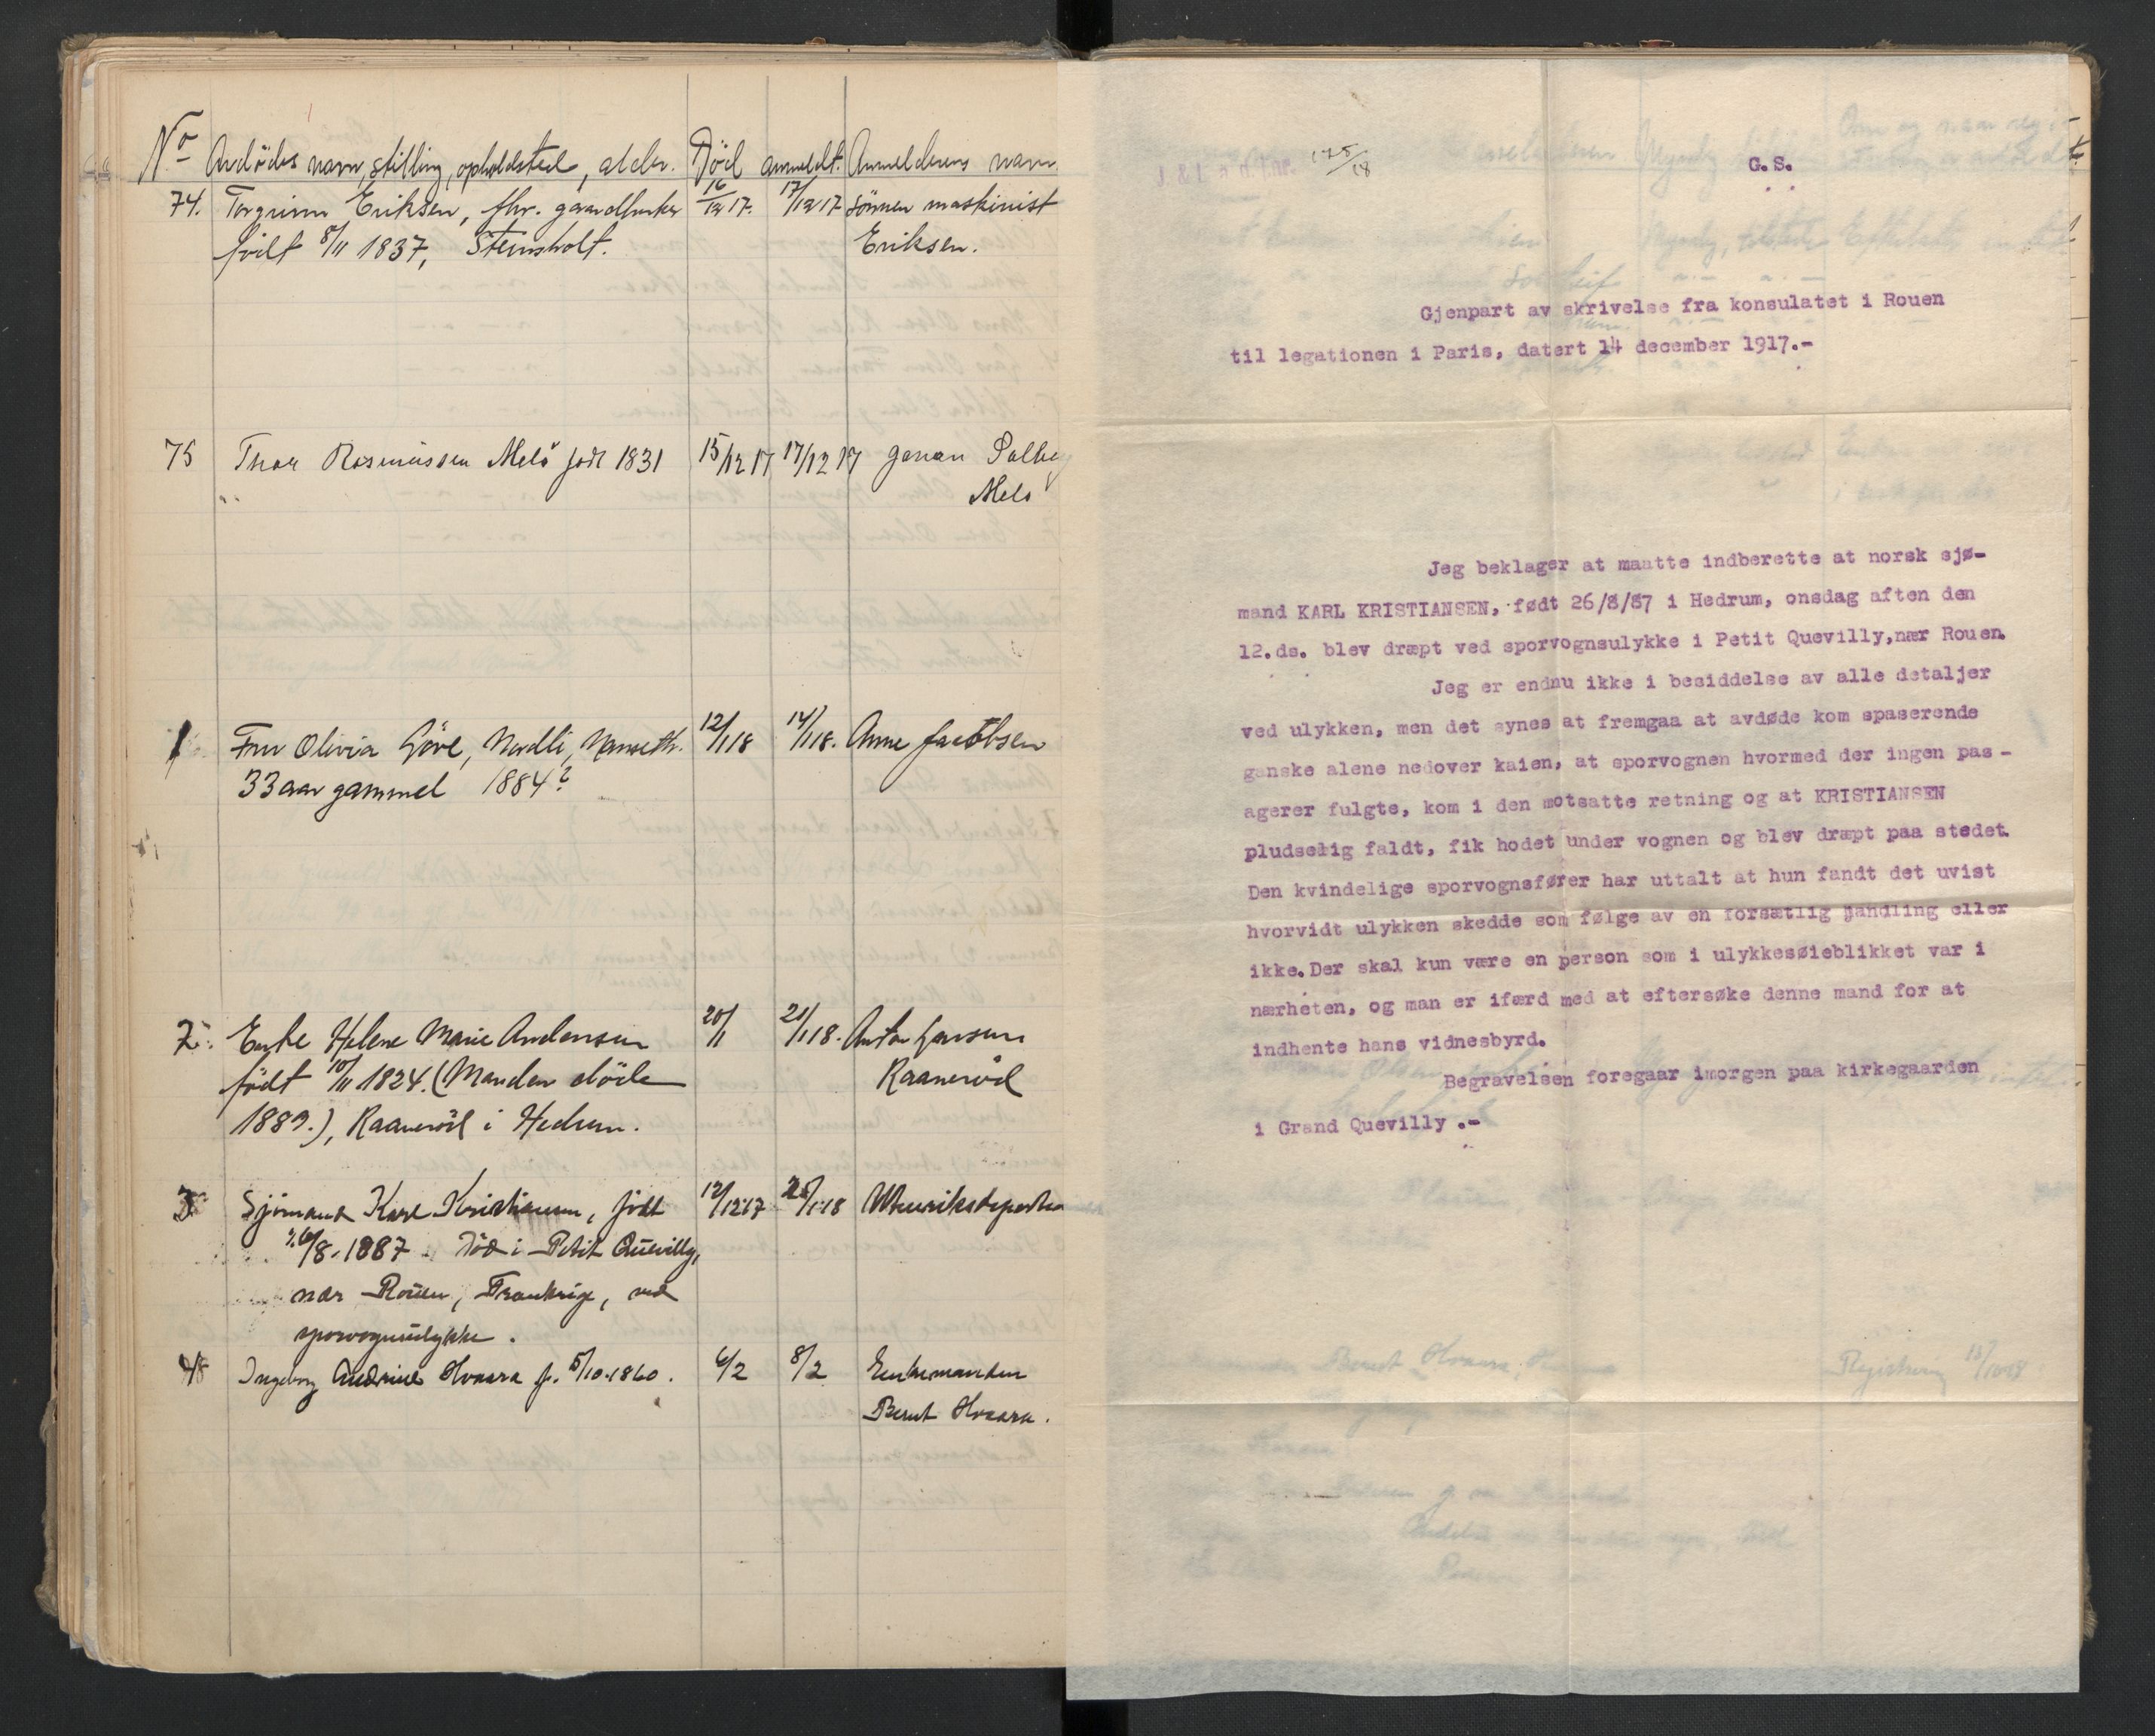 No Avdödes navn, stilling, opholdsted, alder. Död anmeldt. Anmelderens navn
74. Torgrim Eriksen, fhv. gaardbruker 16/12 17. 17/12 17 Sönnen maskinist
födt 8/11 1837, Steinsholt. Eriksen.
75 Thor Rasmussen Melö født 1831 15/12 17 17/12 17
Melö
1 Fru Olivia Göve, Nordli, Nanseth. 12/1 18 14/1 18. Anne Jacobsen
33 aar gammel 1884?
2. Enke Helene Marie Andersen 20/1 21/1 18. Anton Hansen
födt 10/11 1824. (Manden döde Raaneröd
1889.), Raaneröd i Hedrum.
3 Sjömand Karl Kristiansen, födt 12/12 17 1 18 Utenriksdepartem
26/8. 1887. Död i Petit Quevilly,
nær Rouen, Frankrige, ved
sporvognsulykke.
4 Ingeborg Andrine Hvaara f. 5/10. 1860. 6/2 8/2 Enkemanden
Bernt Hvaara.
175/18
G. S.
Gjenpart av skrivelse fra konsulatet i Rouen
til legationen i Paris, datert 14 december 1917.-
Jeg beklager at maatte indberette at norsk sjø-
mand KARL KRISTIANSEN, født 26/8/87 i Hedrum, onsdag aften den
12.ds. blev dræpt ved sporvognsulykke i Petit Quevilly,nær Rouen.
Jeg er endnu ikke i besiddelse av alle detaljer
ved ulykken, men det synes at fremgaa at avdøde kom spaserende
ganske alene nedover kaien, at sporvognen hvormed der ingen pas -
agerer fulgte, kom i den motsatte retning og at KRISTIANSEN
pludselig faldt, fik hodet under vognen og blev dræpt paa stedet.
Den kvindelige sporvognsfører har uttalt at hun fandt det uvist
hvorvidt ulykken skedde som følge av en forsætlig handling eller
ikke. Der skal kun være en person som i ulykkesøieblikket var i
nærheten, og man er ifærd med at eftersøke denne mand for at
indhente hans vidnesbyrd.
Begravelsen foregaar imorgen paa kirkegaarden
i Grand Quevilly .-